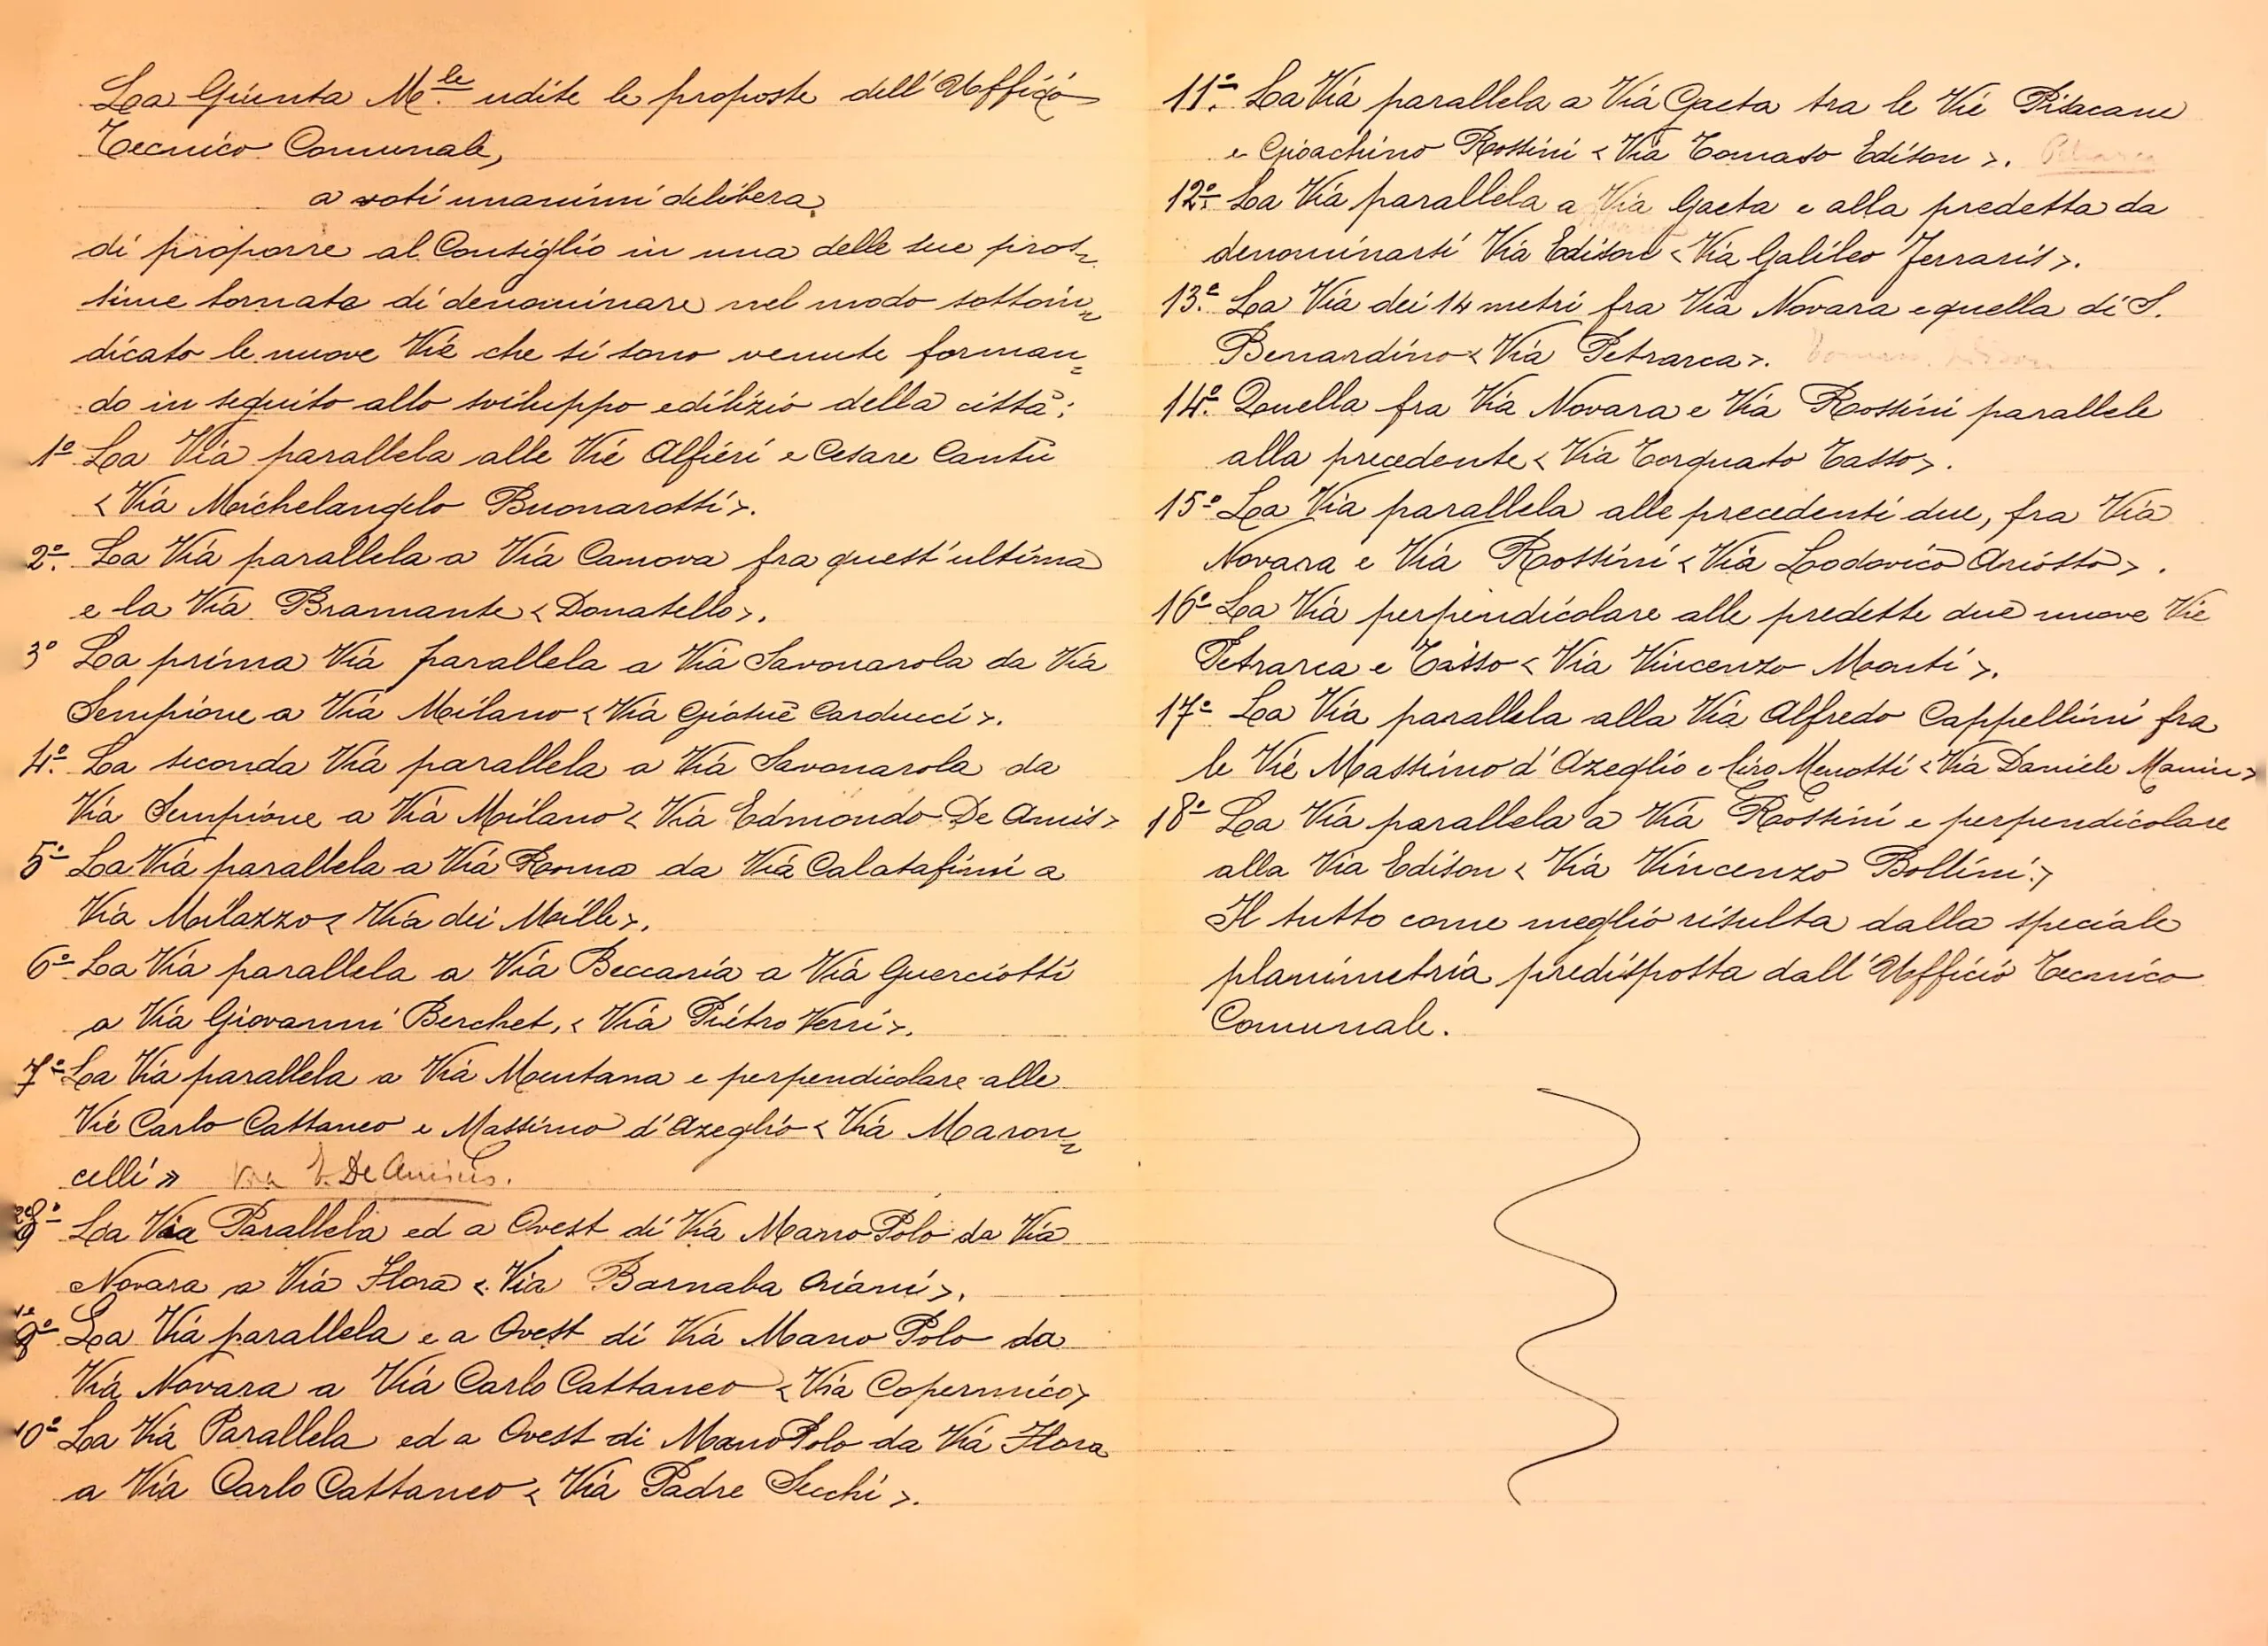 La Giunta M.le udite le proposte dell'Ufficio
Tecnico Comunale,
a voti unanimi delibera
di proporre al Consiglio in una delle sue pros=
sime tornate di denominare nel modo sottoin=
dicato le nuove Vie che si sono venute forman=
do in seguito allo sviluppo edilizio della città:
1º La Via parallela alle Vie Alfieri e Cesare Cantù
<Via Michelangelo Buonarotti>.
2º. La Via parallela a Via Canova fra quest'ultima
e la Via Bramante <Donatello>.
3º La prima Via parallela a Via Savonarola da Via
Sempione a Via Milano <Via Giosuè Carducci>.
4º. La seconda Via parallela a Via Savonarola da
Via Sempione a Via Milano <Via Edmondo De Amis>
5º La Via parallela a Via Roma da Via Calatafimi a
Via Milazzo <Via dei Mille>.
6º La Via parallela a Via Beccaria a Via Guerciotti
a Via Giovanni Berchet, <Via Pietro Verri>.
7º La Via parallela a Via Mentana e perpendicolare alle
Vie Carlo Cattaneo e Massimo d'Azeglio <Via Maron=
celli» Via E. De Amicis.
La Via Parallela ed a Ovest di Via Marco Polo da Via
Novara a Via Flora <Via Barnaba Oriani>.
La Via parallela e a Ovest di Via Marco Polo da
Via Novara a Via Carlo Cattaneo <Via Copernico>
10º La Via Parallela ed a Ovest di Marco Polo da Via Flora
a Via Carlo Cattaneo <Via Padre Secchi>.
11º. La Via parallela a Via Gaeta tra le Vie Pisacane
e Gioachino Rossini <Via Tomaso Edison>. Petrarca
12º. La Via parallela a Via Gaeta e alla predetta da
denominarsi Via Edison <Via Galileo Ferraris>.
13º. La Via dei 14 metri fra Via Novara e quella di S.
Bernardino <Via Petrarca>.
14º. Quella fra Via Novara e Via Rossini parallele
alla precedente <Via Torquato Tasso>.
15º La Via parallela alle precedenti due, fra Via
Novara e Via Rossini <Via Lodovico Ariosto>.
16º La Via perpendicolare alle predette due nuove Vie
Petrarca e Tasso <Via Vincenzo Monti>.
17º La Via parallela alla Via Alfredo Cappellini fra
le Vie Massimo d'Azeglio e Ciro Menotti <Via Daniele Manin>
18º La Via parallela a Via Rossini e perpendicolare
alla Via Edison <Via Vincenzo Bellini.>
Il tutto come meglio risulta dalla speciale
planimetria predisposta dall'Ufficio Tecnico
Comunale.